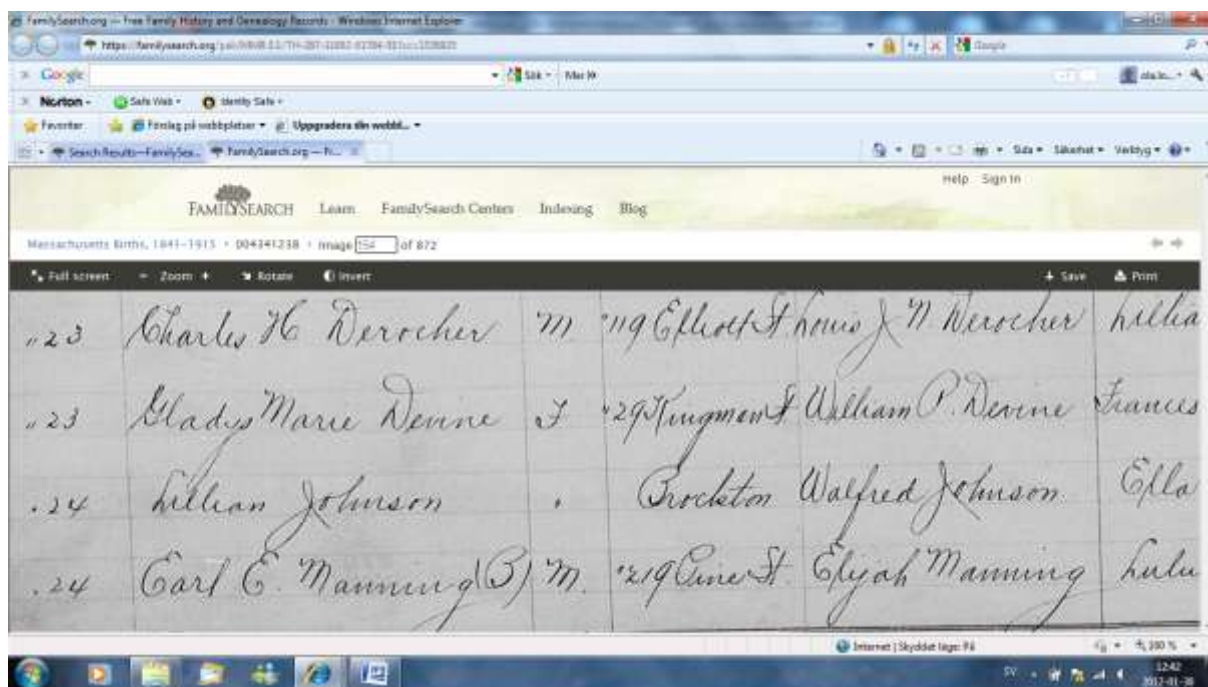 FamilySearch.org — Free Family History and Genealogy Records - Windows Internet Explorer
https://familysearch.org/
Google
Google Sök Mer
Norton Safe Web Identity Safe
Favoriter Förslag på webbplatser Uppgradera din webbl...
Search Results—FamilySea... FamilySearch.org — Fr... Sida Säkerhet Verktyg
Help Sign In
FAMILYSEARCH Learn FamilySearch Centers Indexing Blog
Massachusetts Births, 1841-1915 004341238 Image 154 of 872
Full screen - Zoom + Rotate Invert Save Print
"23 Charles H Derocher M "119 Elliott St Louis J. N. Derocher Lillia
"23 Gladys Marie Devine F "29 Kingman St William P. Devine Frances
"24 Lillian Johnson " Brockton Walfred Johnson Ella
"24 Earl E. Manning (B) M. "219 Pine St. Elijah Manning Lulu
Internet | Skyddat läge: På 200 %
SV 12:42
2012-01-30